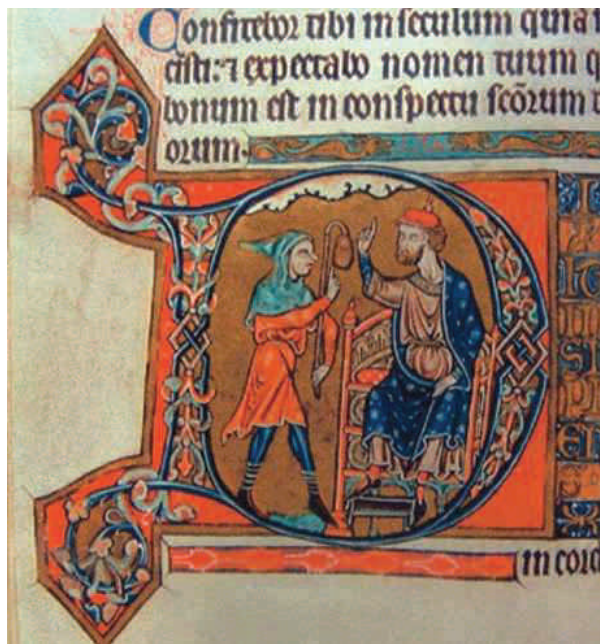 Confitebor tibi in seculum quia
cisti: ⁊ expectabo nomen tuum q
bonum est in conspectu scōrum t
orum.
D
in cord